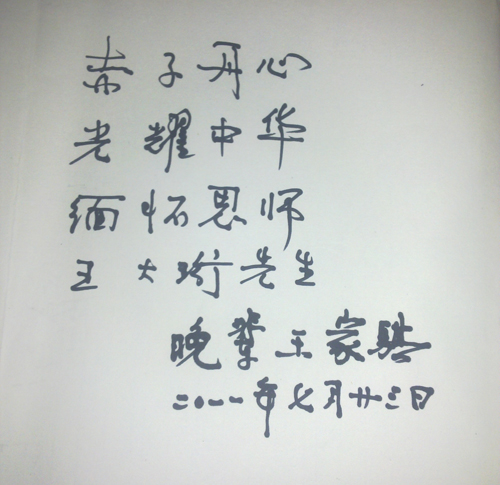 赤子丹心
光耀中华
缅怀恩师
王大珩先生
晚辈王家骐
二〇一一年七月廿三日